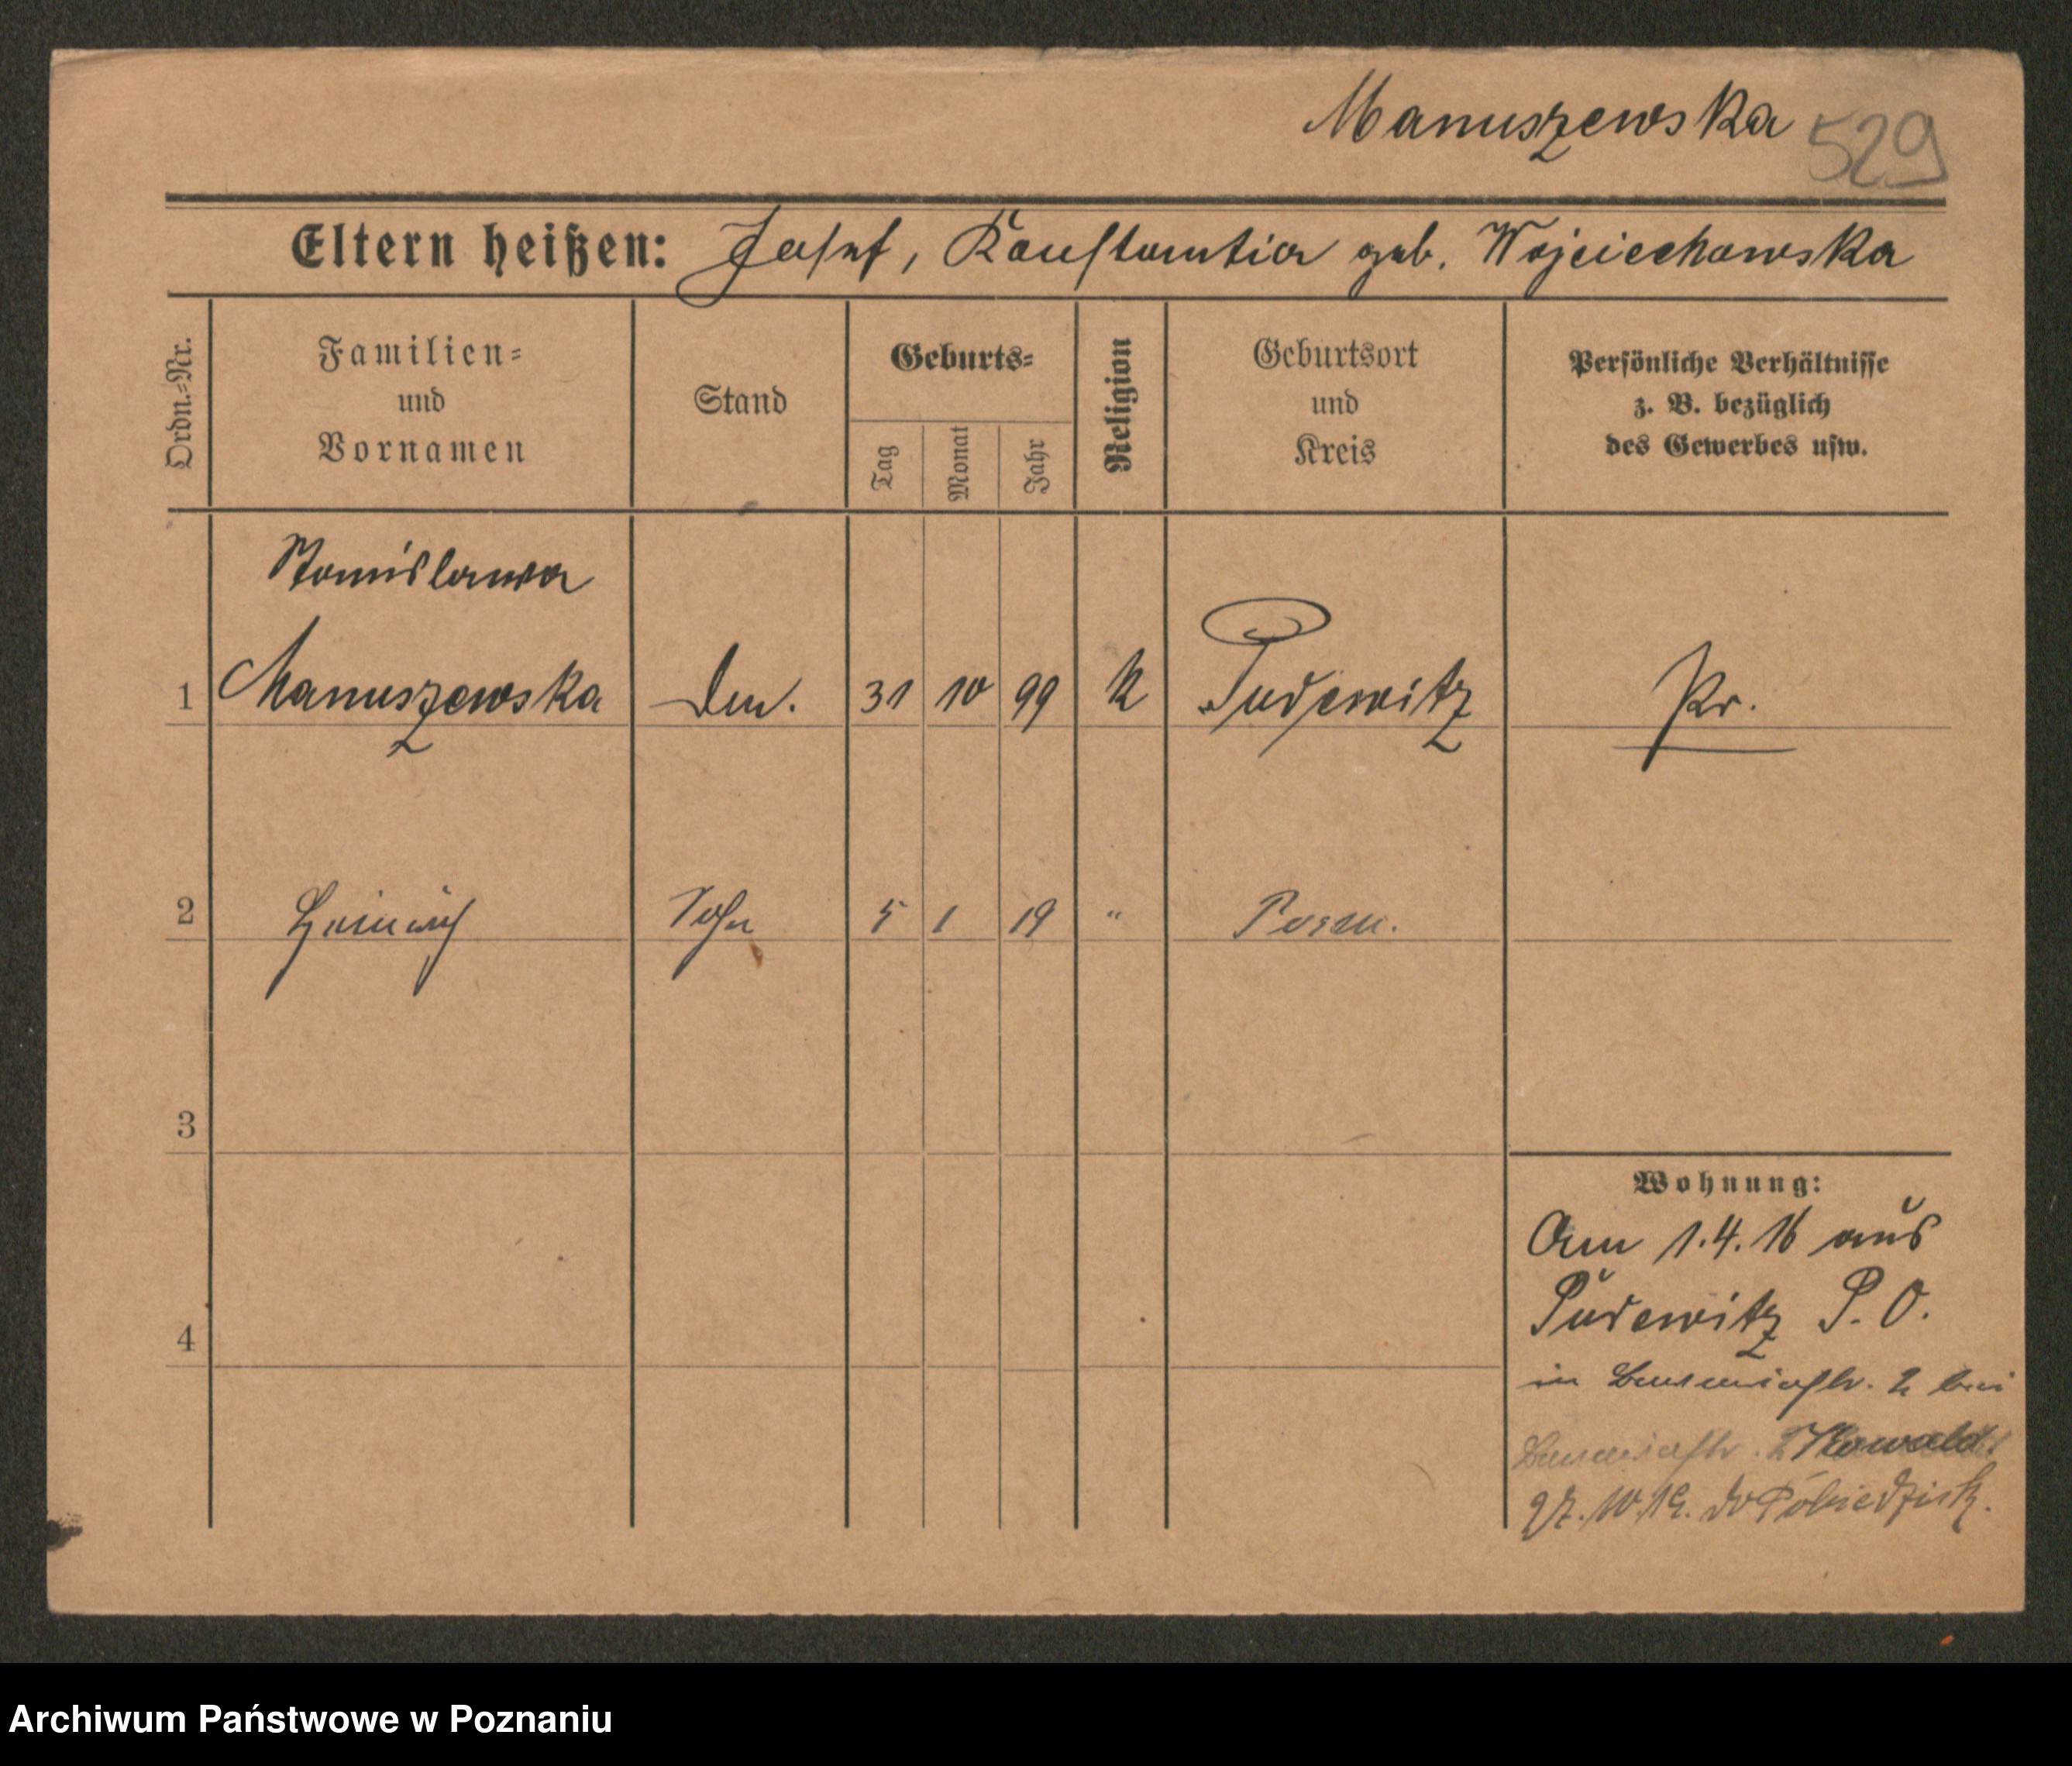 Manuszewska 529
Eltern heißen: Josef, Konstantia geb. Wojciechowska
Ordn.-Nr.
Familien- und Vornamen
Stand
Geburts-
Tag
Monat
Jahr
Religion
Geburtsort und Kreis
Persönliche Verhältnisse
z. B. bezüglich
des Gewerbes usw.
Stanislawa
1 Manuszewska 31 10 99 k Pudewitz Pr.
2 Heinrich Sohn 5 1 19 " Posen.
3
4
Wohnung:
Am 1.4.16 aus
Pudewitz P. O.
in 2 bei
Kowalski
27.10.19. do Pobiedzisk.
Archiwum Państwowe w Poznaniu